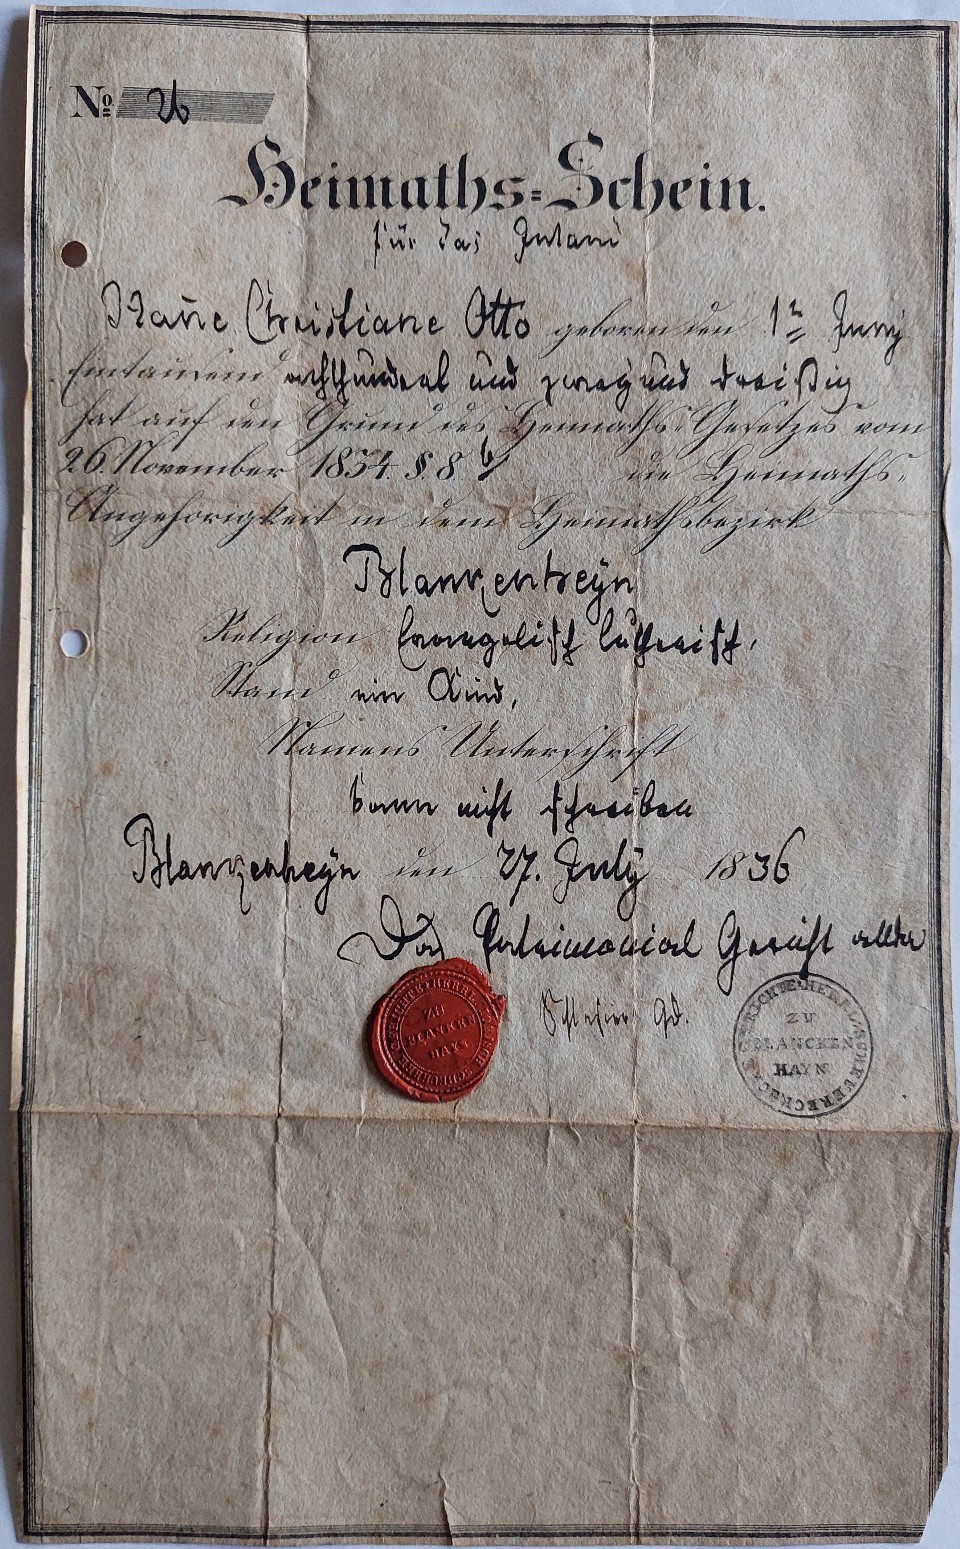 No 26
Heimaths=Schein.
für das Inland
Christiane Otto geboren den 1n Juny
Eintausend achthundert und zwey und dreißig
hat auf den Grund des Heimaths-Gesetzes vom
26. November 1834. §. 8 b die Heimaths-
Angehörigkeit in dem Heimathsbezirk
Blankenheyn
Religion Evangelisch lutherisch.
Stand ein Kind,
Namens Unterschrift
kann nicht schreiben
Blankenheyn den 27. July 1836
Das Patrimonial Gericht allda
ZU
BLANCKEN
HAYN
ZU
BLANCKEN
HAYN